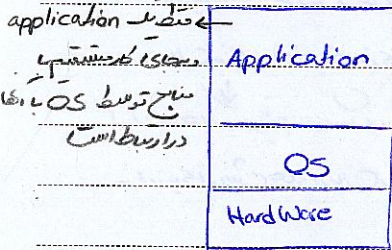 application منظر یک ←
وبجای کار مستقیم با
منابع توسط OS با آنها
در ارتباط است
Application
OS
HardWare